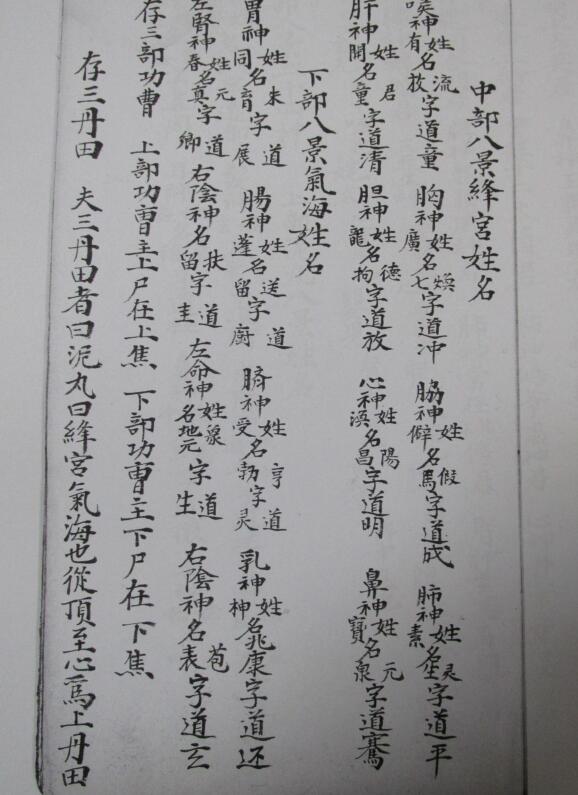 中部八景綘宮姓名
喉神姓流名有枚字道童 胸神姓煥名廣七字道冲 脇神姓假名僻馬字道成 肺神姓灵名素字道平
肝神姓君名開童字道清 胆神姓德名龍拘字道放 心神姓陽名渙昌字道明 鼻神姓元名寶泉字道騫
下部八景氣海姓名
胃神姓未名同育字道展 腸神姓送名蓬留字道廚 臍神姓亨名受勃字道灵 乳神姓名神康字道还
左腎神姓元名春真字道卿 右陰神名扶留字道圭 左命神姓泉名地元字道生 右陰神名苞表字道玄
存三部功曹 上部功曹主上尸在上焦 下部功曹主下尸在下焦
存三丹田 夫三丹田者曰泥丸曰綘宮氣海也從頂至心爲上丹田